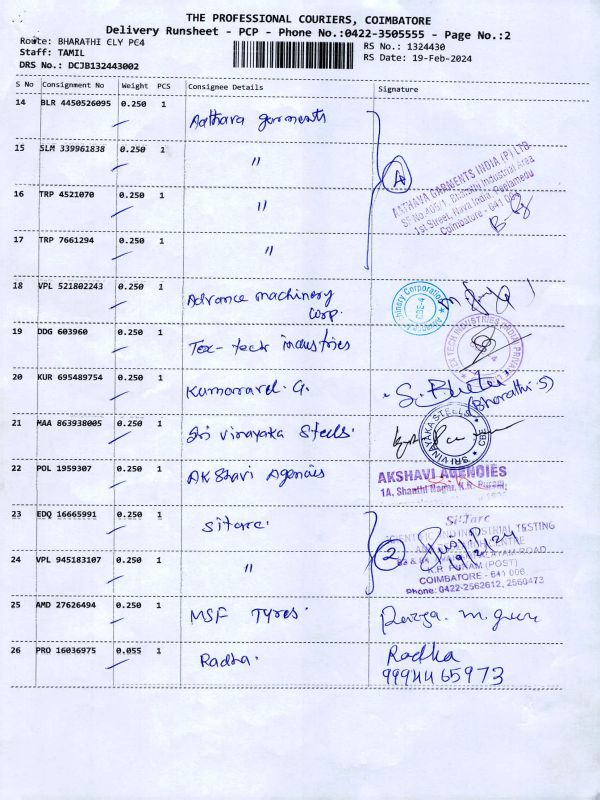 THE PROFESSIONAL COURIERS, COIMBATORE
Delivery Runsheet - PCP - Phone No.:0422-3505555 - Page No.:2
Route: BHARATHI CLY PC4
Staff: TAMIL
DRS No.: DCJB132443002
RS No.: 1324430
RS Date: 19-Feb-2024
S No Consignment No Weight PCS Consignee Details Signature
14 BLR 4450526095 0.250 1 Aathava garments
15 SLM 339961838 0.250 1 "
16 TRP 4521070 0.250 1 "
17 TRP 7661294 0.250 1 "
4
AATHAVA GARMENTS INDIA (P) LTD.
1st Street, Nava India, Peelamedu
Coimbatore - 641 004
18 VPL 521802243 0.250 1 Advance machinery
corp.
19 DDG 603960 0.250 1 Tex-teck industries
20 KUR 695489754 0.250 1 Kumaravel. G.
(Bharathi.S)
21 MAA 863938005 0.250 1 Sri Vinayaka Steels.
SRI VINAYAKA STEELS CBE
22 POL 1959307 0.250 1 AKShavi Agencies
AKSHAVI AGENCIES
1A, Shanthi Nagar, K.R. Puram,
23 EDQ 16665991 0.250 1 Sitarc.
24 VPL 945183107 0.250 1 "
2
Si'Tarc
SCIENTIFIC AND INDUSTRIAL TESTING
K.R. PURAM (POST)
COIMBATORE - 641 006
Phone: 0422-2562612, 2560473
19/2/24
25 AMD 27626494 0.250 1 MSF Tyres.
26 PRO 16036975 0.055 1 Radha.
Radha
9994465973